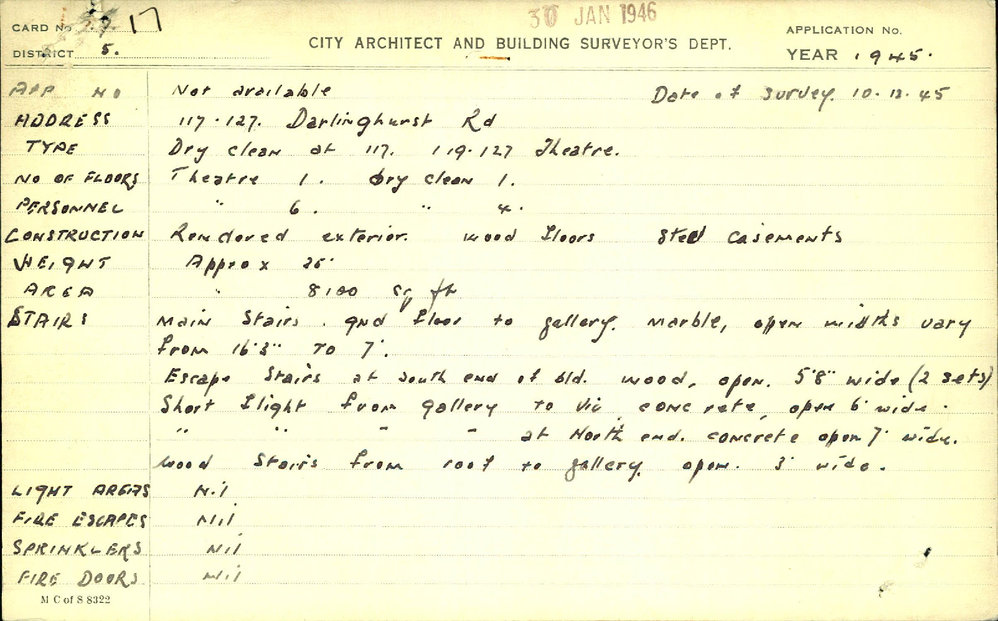 30 JAN 1946
CARD No 17
DISTRICT 5.
CITY ARCHITECT AND BUILDING SURVEYOR'S DEPT.
APPLICATION No.
YEAR 1945.
APP NO Not available Date of Survey. 10.12.45
ADDRESS 117-127. Darlinghurst Rd
TYPE Dry clean at 117. 119-127 Theatre.
NO OF FLOORS Theatre 1. Dry clean 1.
PERSONNEL " 6. " 4.
CONSTRUCTION Rendered exterior. wood floors Steel casements
HEIGHT Approx
AREA " 8100 sq ft
STAIRS Main Stairs. gnd floor to gallery. Marble, open widths vary
from 16'3" TO 7'.
Escape Stairs at south end of bld. wood, open. 5'8" wide (2 sets)
Short flight from gallery to Vic, concrete, open 6' wide.
" " " " at North end. concrete open 7' wide.
Wood Stairs from roof to gallery. open. 3' wide.
LIGHT AREAS Nil
FIRE ESCAPES Nil
SPRINKLERS Nil
FIRE DOORS Nil
M C of S 8322